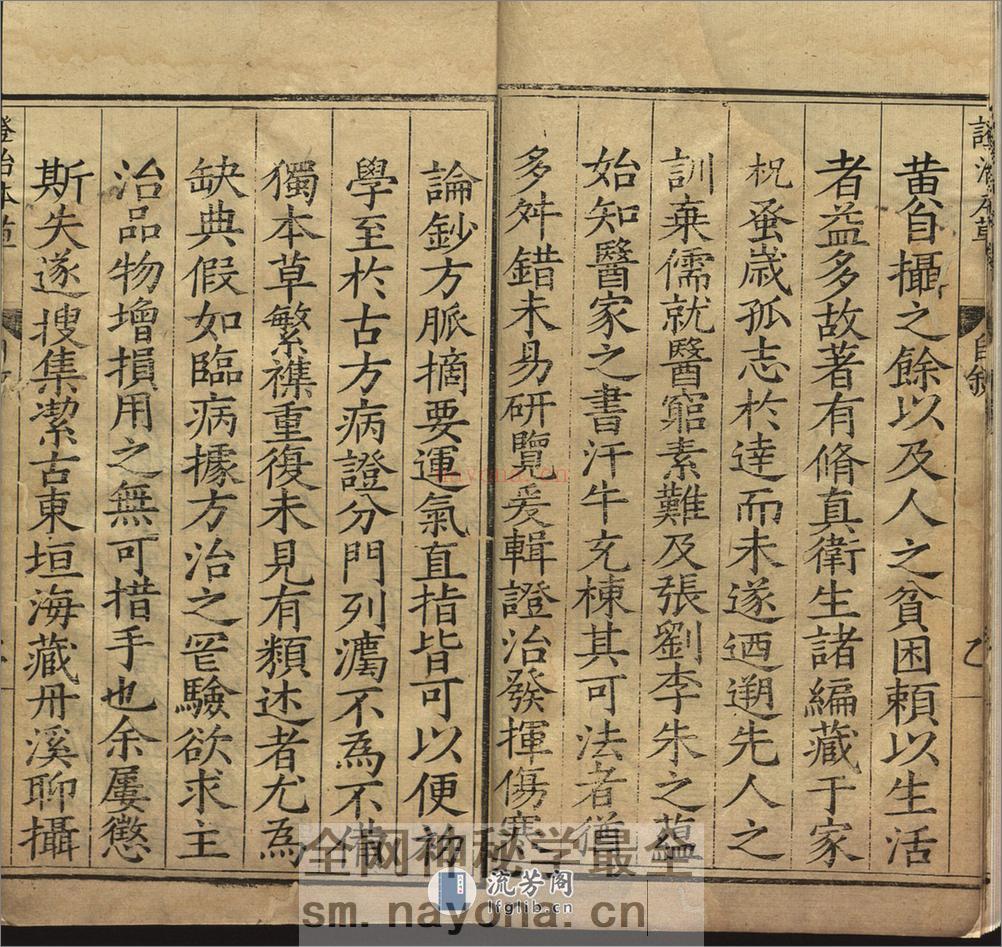 黄自攝之餘以及人之貧困賴以生活
者益多故著有脩真衛生諸編藏于家
柷蚤歲孤志於達而未遂迺遡先人之
訓棄儒就醫窮素難及張劉李朱之蘊
始知醫家之書汗牛充棟其可法者猶
多舛錯未易研覽爰輯證治發揮傷寒
論鈔方脈摘要運氣直指皆可以便初
學至於古方病證分門列濿不為不備
獨本草繁襍重復未見有類述者尤為
缺典假如臨病據方治之罕驗欲求主
治品物增損用之無可措手也余屢懲
斯失遂搜集潔古東垣海藏丹溪聊攝
證治本草
自敘
乙
nayona.cn
全网神秘学最全
流芳阁
lfglib.cn
sm.nayona.cn